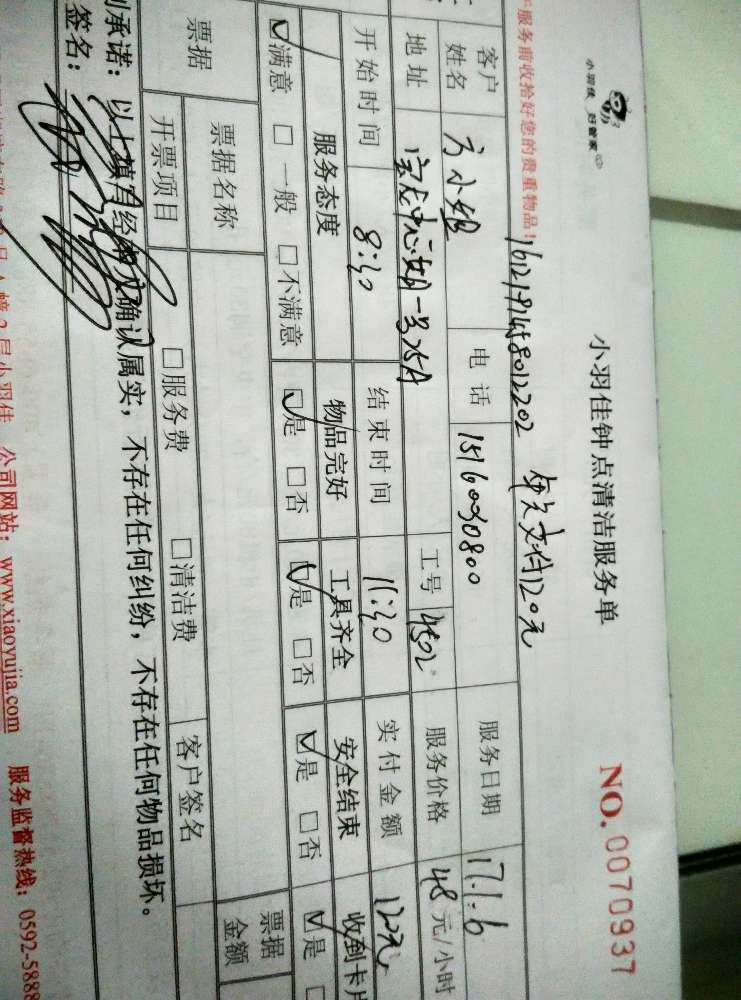 小羽佳 好管家
小羽佳钟点清洁服务单
NO.0070937
1612191458012202
120元
服务前收拾好您的贵重物品!
客户姓名 方小姐 电话 15160030800 服务日期 17.1.6
地址 一号25A 工号 4502 服务价格 48元/小时
开始时间 8:30 结束时间 11:30 实付金额 120元
服务态度 物品完好 工具齐全 安全结束 收到卡片
☑满意 □一般 □不满意 ☑是 □否 ☑是 □否 ☑是 □否 ☑是 □
票据 票据名称 票据金额
开票项目 □服务费 □清洁费 客户签名
承诺:以上填写经确认属实,不存在任何纠纷,不存在任何物品损坏。
签名:
层小羽佳 公司网站:www.xiaoyujia.com 服务监督热线:0592-5888